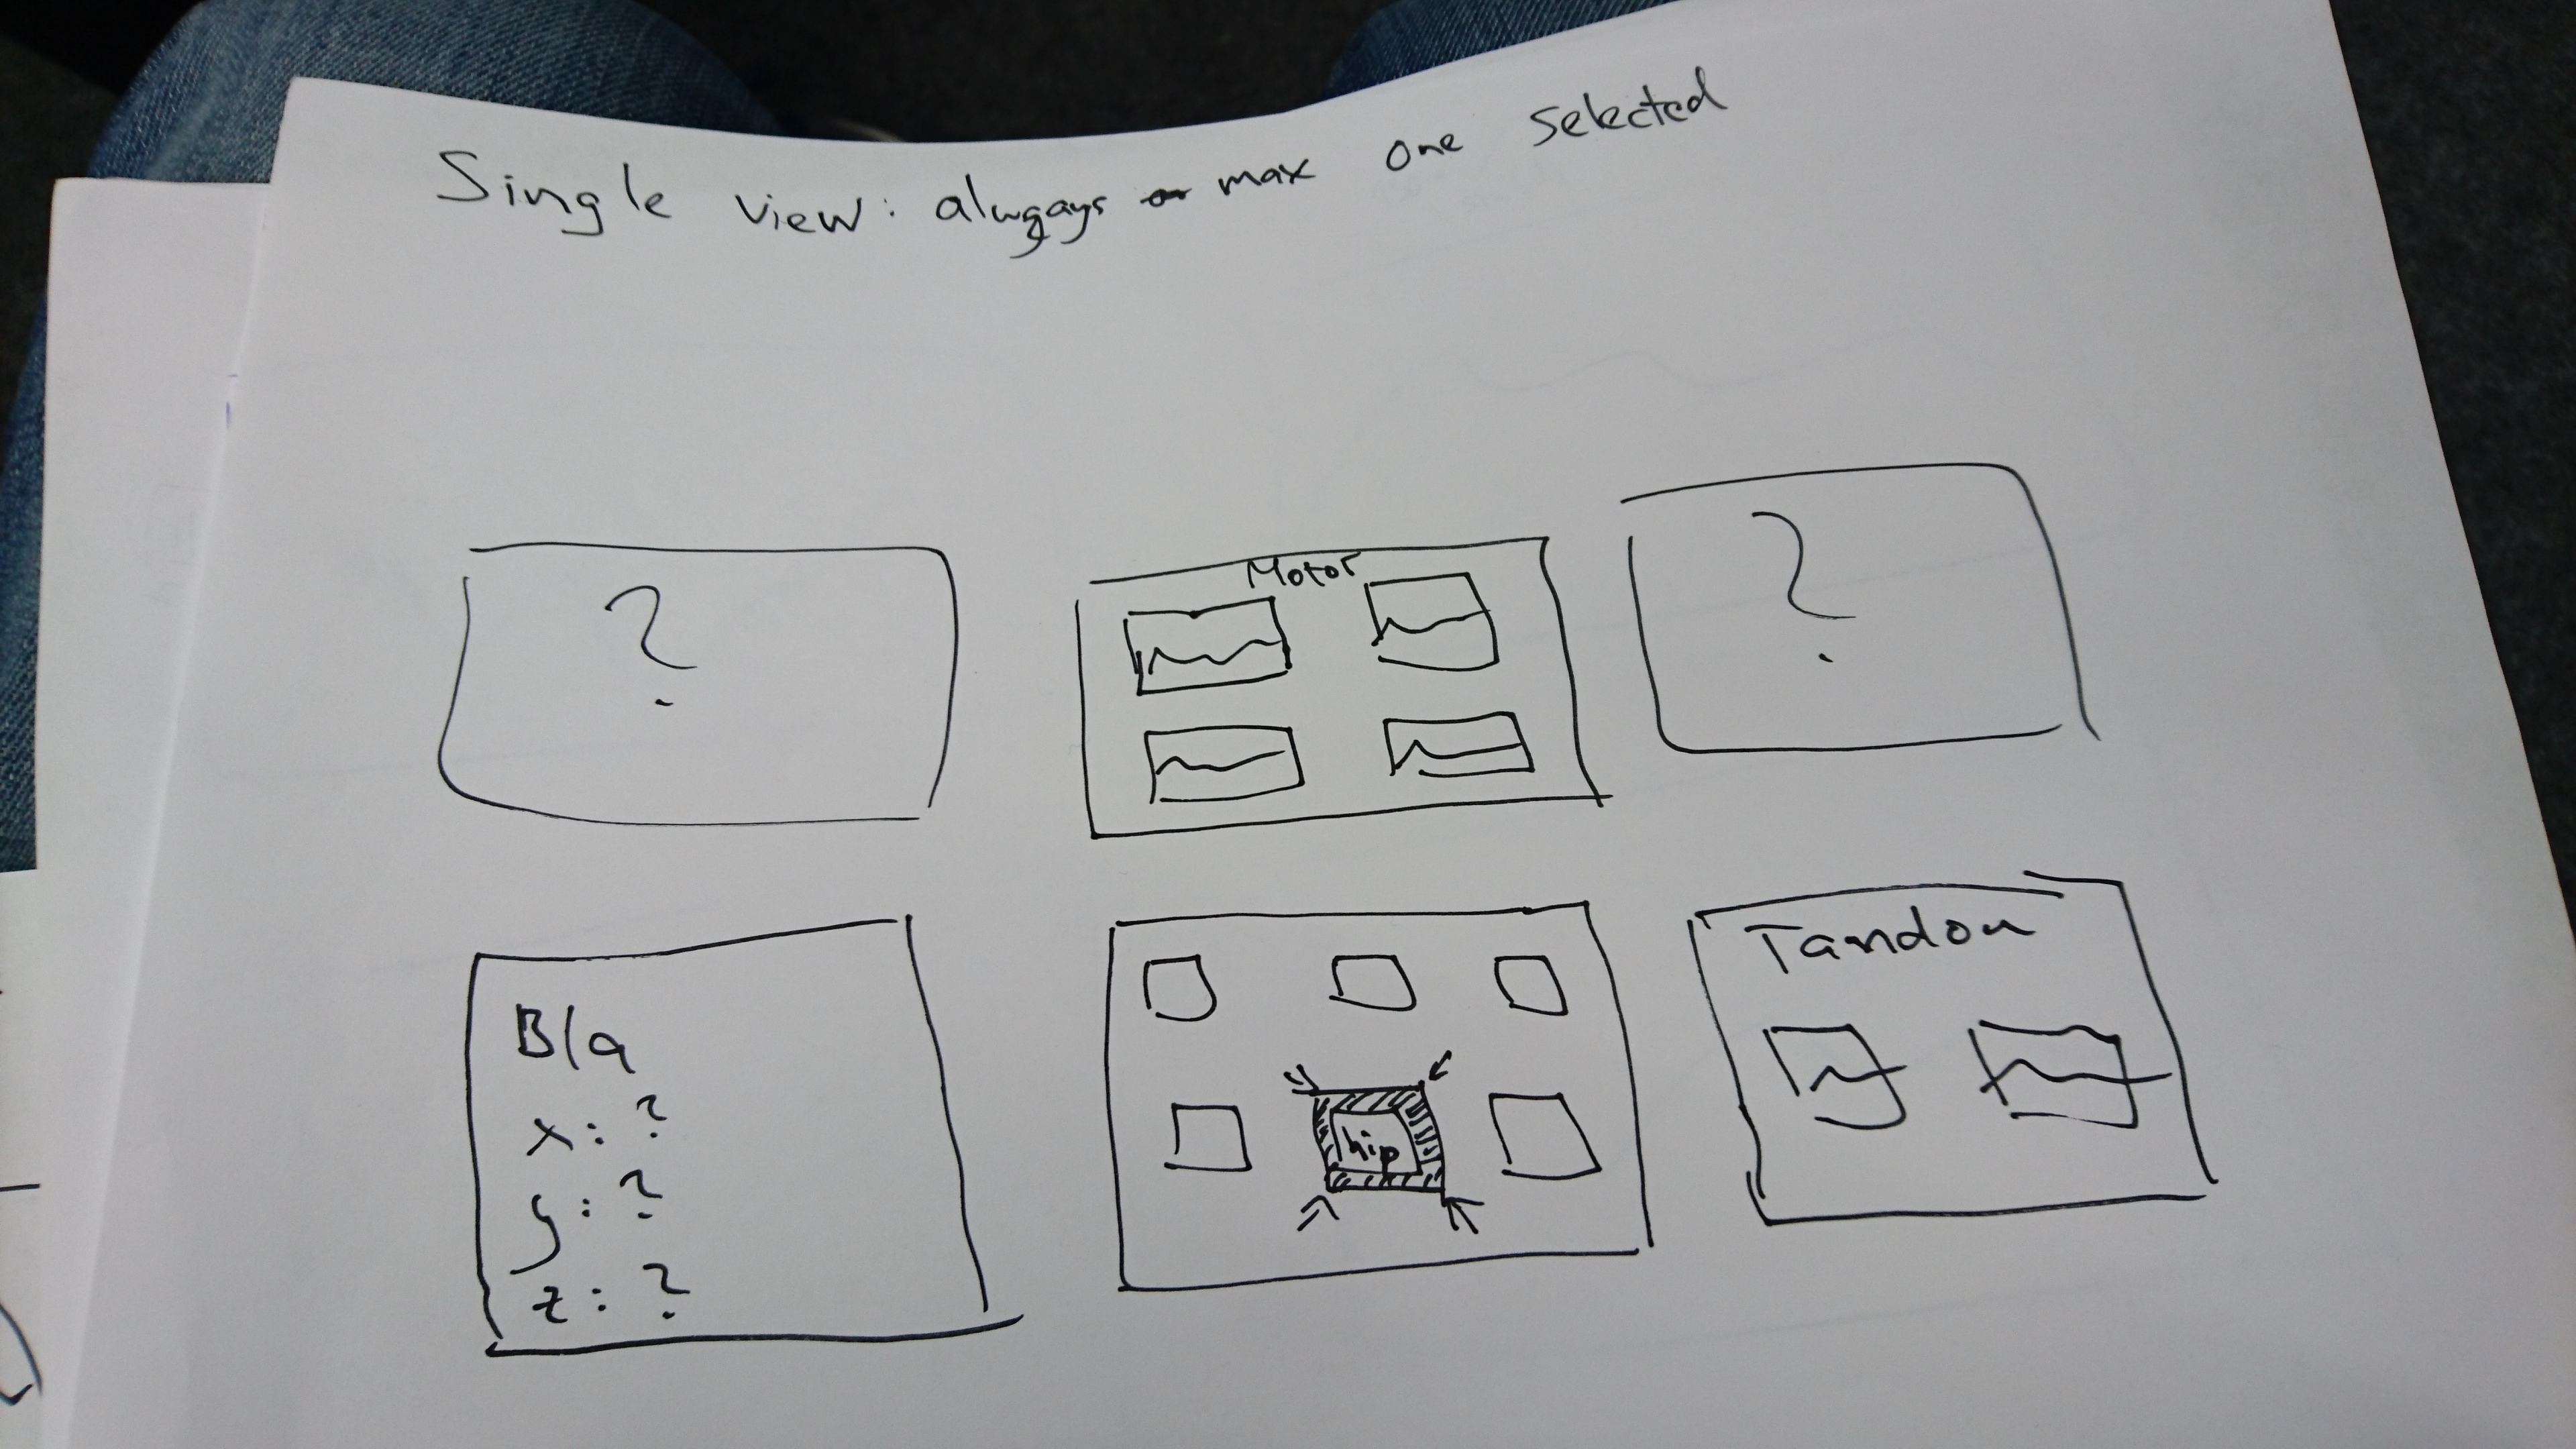 Single view: alwgays max one selected
?
Motor
?
Bla
x: ?
y: ?
z: ?
hip
Tandon